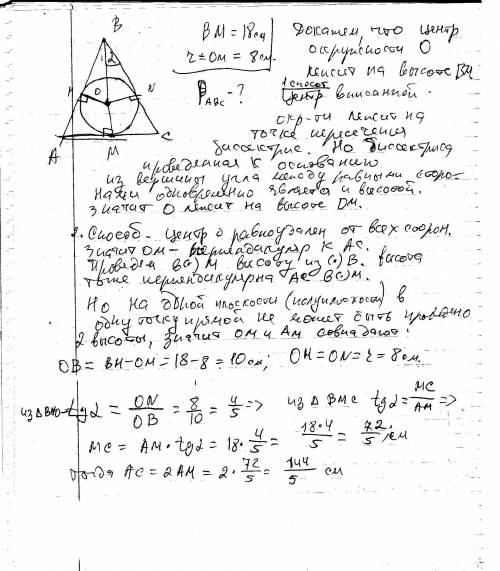 B
BM = 18см
r = OM = 8см.
P ABC - ?
Докажем, что центр
окружности O
лежит на высоте BM
1 способ
Центр вписанной
окр-ти лежит на
точке пересечения
биссектрис. Но биссектриса
проведенная к основанию
из вершины угла между равными сторо-
нами одновременно является и высотой.
Значит O лежит на высоте
A
M
C
H
O
N
2
2. Способ. Центр O равноудален от всех сторон.
Значит OM - перпендикуляр к AC.
Проведем B(·)M высоту из (·) B. высота
тоже перпендикулярна AC B(·)M.
Но на одной плоскости (полуплоскости) в
одну точку прямой не может быть проведено
2 высоты, значит OM и AM совпадают.
OB = BH - OM = 18 - 8 = 10 см; OH = ON = r = 8 см.
из Δ BNO tg 2 = ON/OB = 8/10 = 4/5 => из Δ BMC tg 2 = MC/AM =>
MC = AM · tg 2 = 18 · 4/5 = 18·4/5 = 72/5 см
тогда AC = 2AM = 2 · 72/5 = 144/5 см